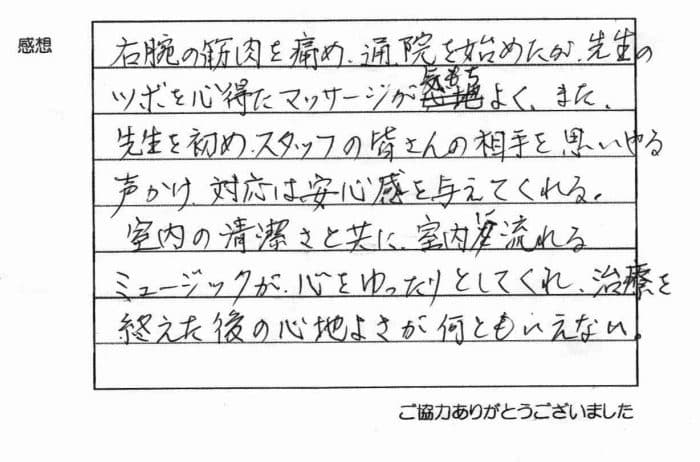 感想
右腕の筋肉を痛め、通院を始めたが、先生の
ツボを心得たマッサージが気もちよく、また、
先生を初め、スタッフの皆さんの相手を思いやる
声かけ、対応は安心感を与えてくれる。
室内の清潔さと共に、室内に流れる
ミュージックが、心をゆったりとしてくれ、治療を
終えた後の心地よさが何ともいえない。
ご協力ありがとうございました